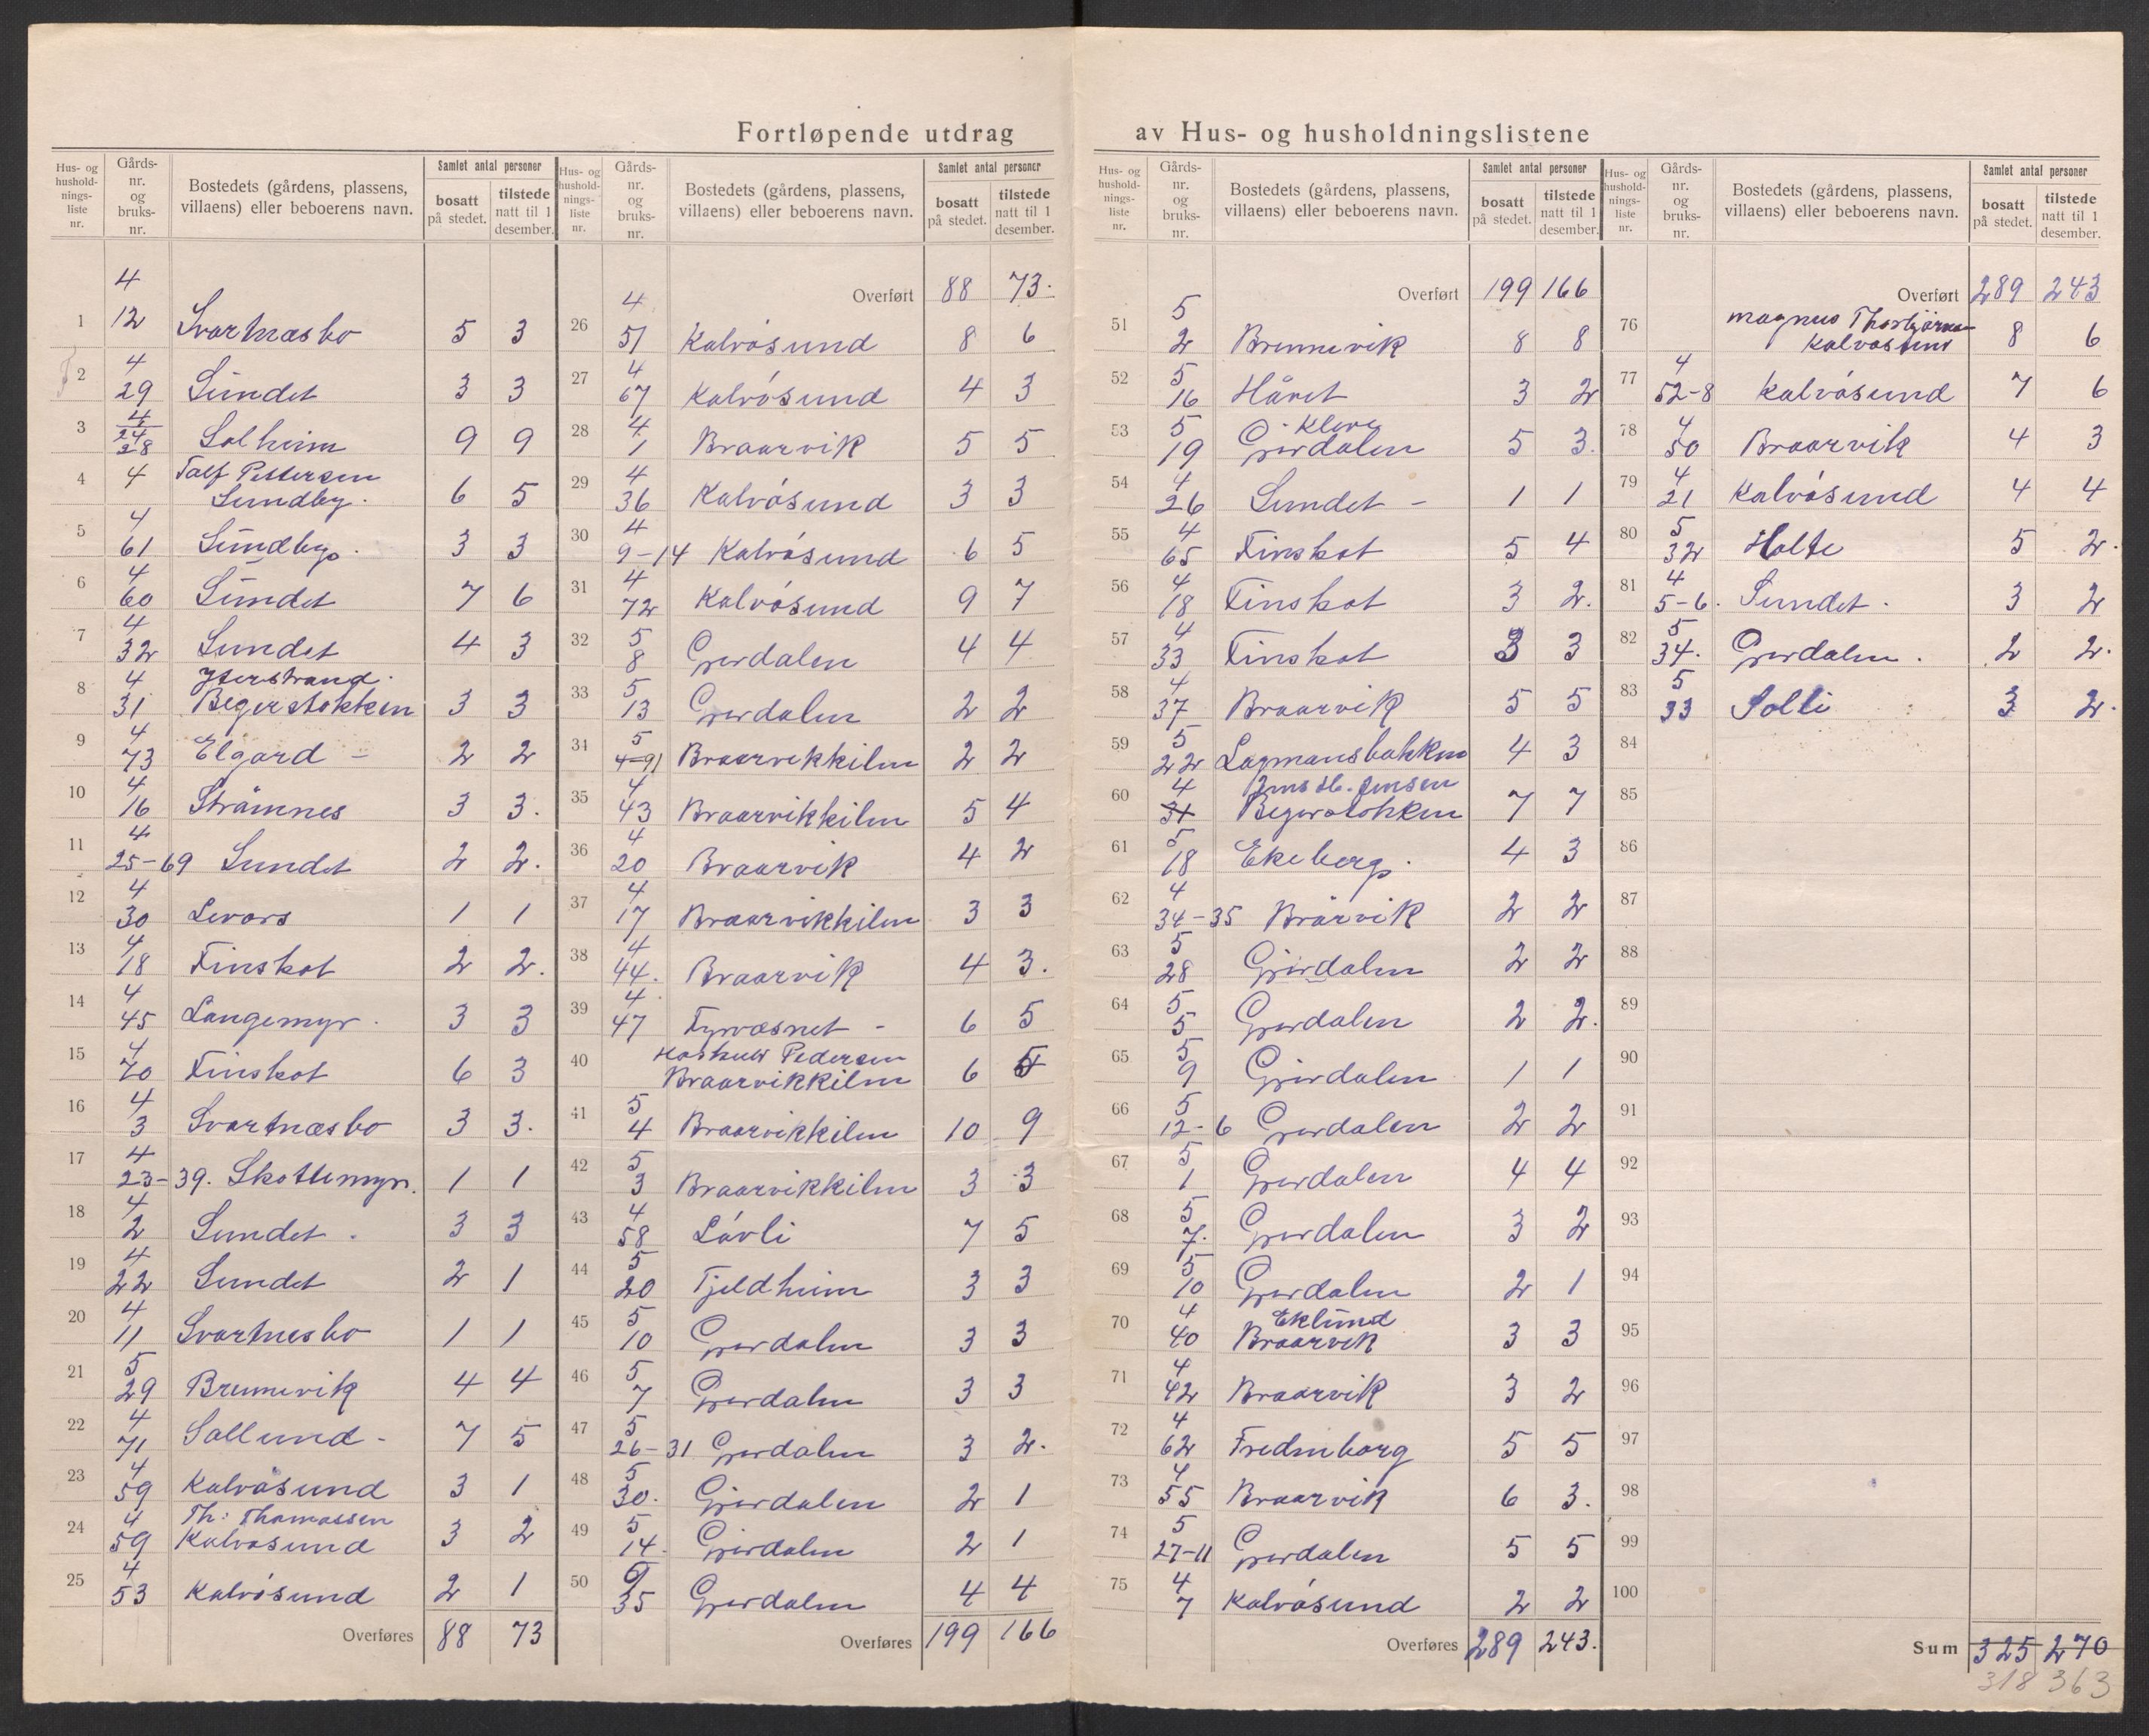 Fortløpende utdrag av Hus- og husholdningslistene
Hus- og husholdnings-liste nr. | Gårds-nr. og bruks-nr. | Bostedets (gårdens, plassens, villaens) eller beboerens navn. | Samlet antal personer | bosatt på stedet. | tilstede natt til 1 desember.
1 4 12 Svartnæsbo 5 3
2 4 29 Sundet 3 3
3 4 24 28 Solheim 9 9
4 4 Talf Pettersen Sundby. 6 5
5 4 61 Sundby. 3 3
6 4 60 Sundet 7 6
7 4 32 Sundet 4 3
8 4 31 Ytterstrand. Begerstokken 3 3
9 4 73 Elgard – 2 2
10 4 16 Strämnes 3 3.
11 4 25-69 Sundet 2 2.
12 4 30 Levors 1 1
13 4 18 Finskot 2 2.
14 4 45 Langemyr. 3 3
15 4 70 Finskot 6 3
16 4 3 Svartnæsbo 3 3.
17 4 23-39. Skottemyr. 1 1
18 4 2 Sundet. 3 3
19 4 22 Sundet 2 1
20 4 11 Svartnesbo 1 1
21 5 29 Brunnevik 4 4
22 4 71 Sollund - 7 5
23 4 59 Kalvåsund 3 1
24 4 59 Th: Thomassen Kalvosund 3 2
25 4 53 Kalvósund 2 1
Overføres 88 73
Hus- og husholdnings-liste nr. | Gårds-nr. og bruks-nr. | Bostedets (gårdens, plassens, villaens) eller beboerens navn. | Samlet antal personer | bosatt på stedet. | tilstede natt til 1 desember.
Overført 88 73.
26 4 51 Kalvósund 8 6
27 4 67 Kalvósund 4 3
28 4 1 Braarvik 5 5
29 4 36 Kalvósund 3 3
30 4 9-14 Kalvósund 6 5
31 4 72 Kalvósund 9 7
32 5 8 Gjerdalen 4 4
33 5 13 Gjerdalen 2 2
34 5 4-91 Braarvikkilen 2 2
35 4 43 Braarvikkilen 5 4
36 4 20 Braarvik 4 2
37 4 17 Braarvikkilen 3 3
38 4 44. Braarvik 4 3.
39 4 47 Fyrvæsnet - 6 5
40 Pedersen Braarvikkilen 6 5
41 5 4 Braarvikkilen 10 9
42 5 3 Braarvikkilen 3 3
43 4 58 Lóvli 7 5
44 5 20 Fjeldheim 3 3
45 5 10 Gjerdalen 3 3
46 5 7 Gjerdalen 3 3
47 5 26-31 Gjerdalen 3 2.
48 5 30. Gjerdalen 2 1
49 5 14. Gjerdalen 2 1
50 5 35 Gjerdalen 4 4
Overføres 199 166
Hus- og husholdnings-liste nr. | Gårds-nr. og bruks-nr. | Bostedets (gårdens, plassens, villaens) eller beboerens navn. | Samlet antal personer | bosatt på stedet. | tilstede natt til 1 desember.
Overført 199 166
51 5 2 Brunnevik 8 8
52 5 16 Håvet 3 2
53 5 19 Kleve Gjerdalen 5 3.
54 4 26 Sundet – 1 1
55 4 65 Finskot 5 4
56 4 18 Finskot 3 2.
57 4 33 Finskot 3 3
58 4 37 Braarvik 5 5
59 5 22 Lagmansbakken 4 3
60 4 31 Jens H. Jensen Begerstokken 7 7
61 5 18 Ekeberg. 4 3
62 4 34-35 Brärvik 2 2
63 5 28 Gjerdalen 2 2
64 5 5 Gjerdalen 2 2.
65 5 9 Gjerdalen 1 1
66 5 12-6 Gjerdalen 2 2
67 5 1 Gjerdalen 4 4
68 5 7. Gjerdalen 3 2
69 5 10 Gjerdalen 2 1
70 4 40 Eklund Braarvik 3 3
71 4 42 Braarvik 3 2
72 4 62 Fredenborg 5 5
73 4 55 Braarvik 6 3.
74 5 27-11 Gjerdalen 5 5
75 4 7 Kalvósund 2 2
Overføres 289 243.
Hus- og husholdnings-liste nr. | Gårds-nr. og bruks-nr. | Bostedets (gårdens, plassens, villaens) eller beboerens navn. | Samlet antal personer | bosatt på stedet. | tilstede natt til 1 desember.
Overført 289 243
76 Magnus Thorbjörnsen Kalvosund 8 6
77 4 52-8 Kalvósund 7 6
78 4 50 Braarvik 4 3
79 4 21 Kalvósund 4 4
80 5 32 Holte 5 2.
81 4 5-6. Sundet. 3 2
82 5 34. Gjerdalen. 2 2.
83 5 33 Solli 3 2.
84
85
86
87
88
89
90
91
92
93
94
95
96
97
98
99
100
Sum 325 270
318 363